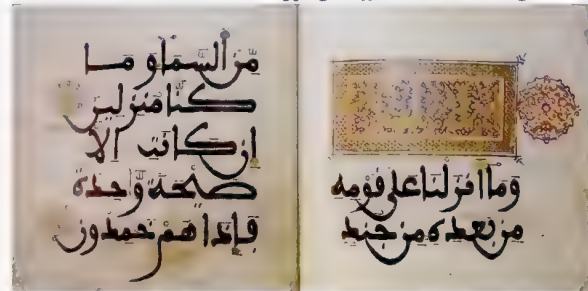 وما أنزلنا على قومه
من بعده من جند
من السماء وما
كنا منزلين
إن كانت إلا
صيحة وحدة
فإذا هم خمدون